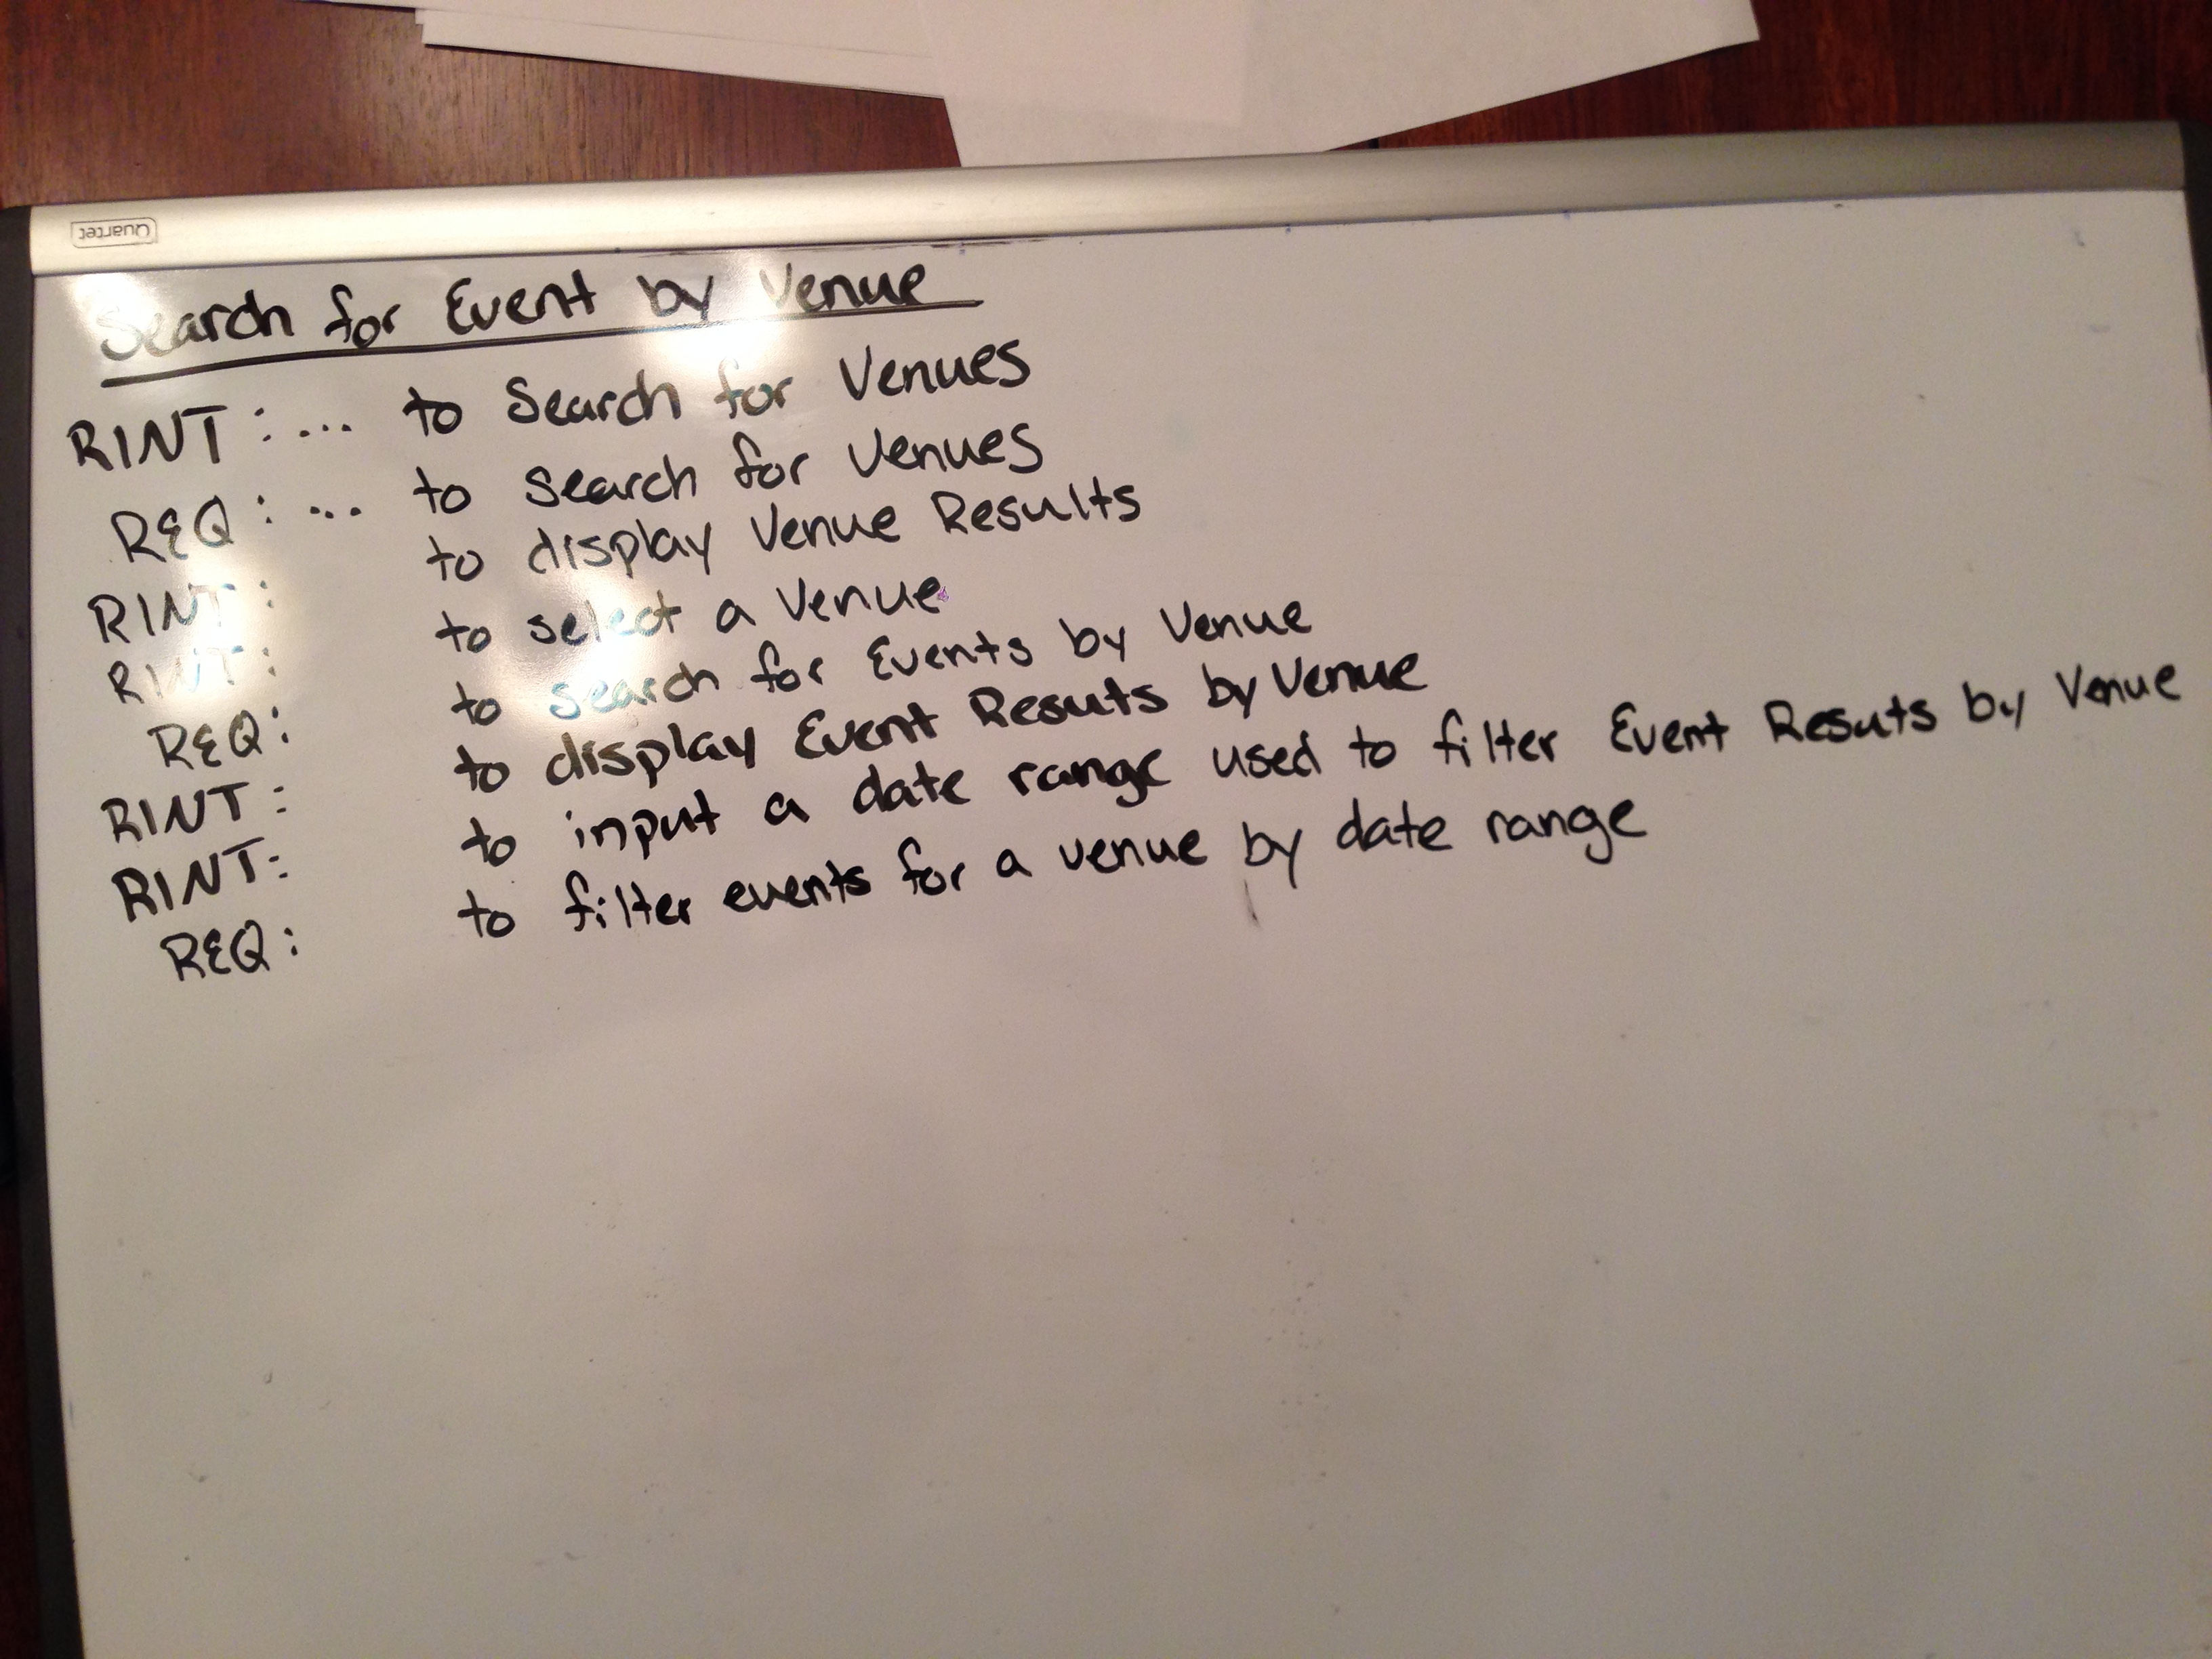 Quartet
Search for Event by Venue
RINT: ... to Search for Venues
REQ: ... to search for Venues
RINT: to display Venue Results
RINT: to select a Venue
REQ: to search for Events by Venue
RINT: to display Event Resuts by Venue
RINT: to input a date range used to filter Event Resuts by Venue
REQ: to filter events for a venue by date range